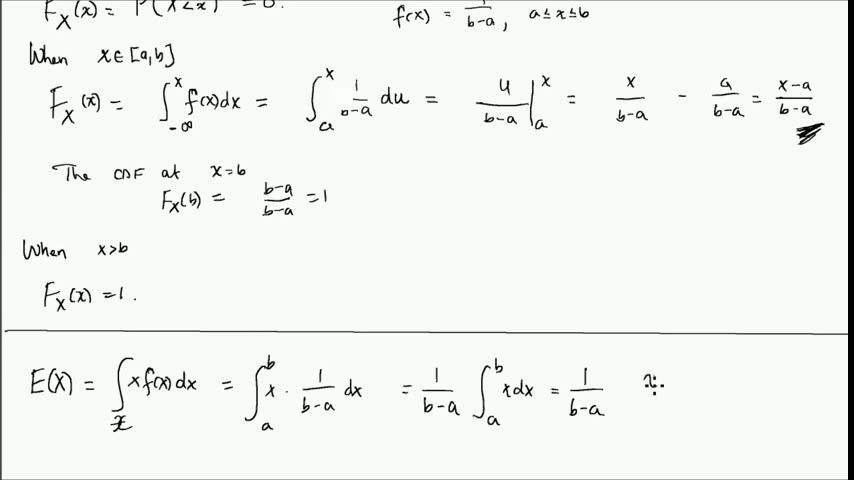 F_X(x) = P(X<x) = 0. f(x) = 1/(b-a), a≤x≤b
When x∈[a,b]
F_X(x) = ∫_{-∞}^{x} f(x)dx = ∫_a^x 1/(b-a) du = u/(b-a) |_a^x = x/(b-a) - a/(b-a) = (x-a)/(b-a)
The CDF at x=b
F_X(b) = (b-a)/(b-a) = 1
When x>b
F_X(x) = 1.
E(X) = ∫_x x f(x) dx = ∫_a^b x · 1/(b-a) dx = 1/(b-a) ∫_a^b x dx = 1/(b-a)